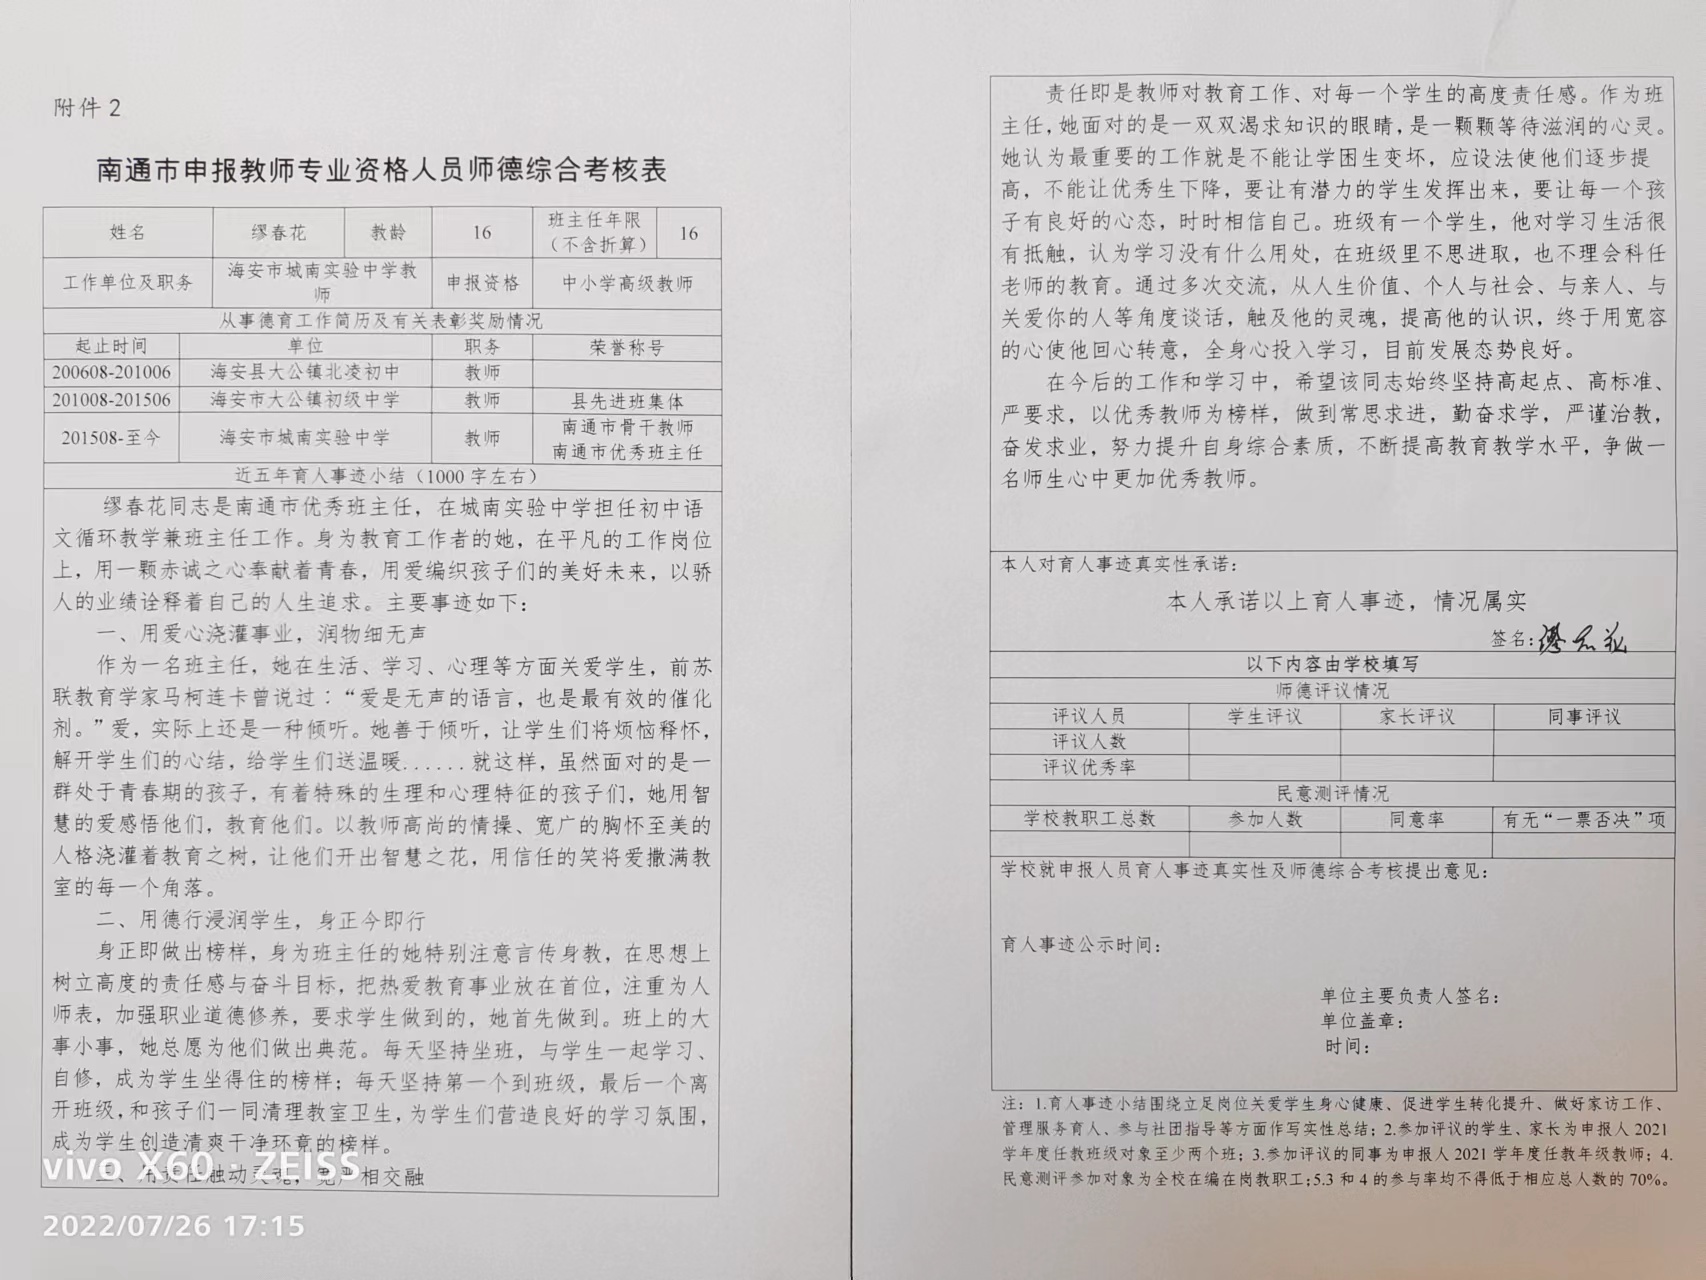 附件 2
南通市申报教师专业资格人员师德综合考核表
姓名 缪春花 教龄 16 班主任年限（不含折算） 16
工作单位及职务 海安市城南实验中学教师 申报资格 中小学高级教师
从事德育工作简历及有关表彰奖励情况
起止时间 单位 职务 荣誉称号
200608-201006 海安县大公镇北凌初中 教师
201008-201506 海安市大公镇初级中学 教师 县先进班集体
201508-至今 海安市城南实验中学 教师 南通市骨干教师 南通市优秀班主任
近五年育人事迹小结（1000 字左右）
缪春花同志是南通市优秀班主任，在城南实验中学担任初中语
文循环教学兼班主任工作。身为教育工作者的她，在平凡的工作岗位
上，用一颗赤诚之心奉献着青春，用爱编织孩子们的美好未来，以骄
人的业绩诠释着自己的人生追求。主要事迹如下：
一、用爱心浇灌事业，润物细无声
作为一名班主任，她在生活、学习、心理等方面关爱学生，前苏
联教育学家马柯连卡曾说过：“爱是无声的语言，也是最有效的催化
剂。”爱，实际上还是一种倾听。她善于倾听，让学生们将烦恼释怀，
解开学生们的心结，给学生们送温暖......就这样，虽然面对的是一
群处于青春期的孩子，有着特殊的生理和心理特征的孩子们，她用智
慧的爱感悟他们，教育他们。以教师高尚的情操、宽广的胸怀至美的
人格浇灌着教育之树，让他们开出智慧之花，用信任的笑将爱撒满教
室的每一个角落。
二、用德行浸润学生，身正今即行
身正即做出榜样，身为班主任的她特别注意言传身教，在思想上
树立高度的责任感与奋斗目标，把热爱教育事业放在首位，注重为人
师表，加强职业道德修养，要求学生做到的，她首先做到。班上的大
事小事，她总愿为他们做出典范。每天坚持坐班，与学生一起学习、
自修，成为学生坐得住的榜样；每天坚持第一个到班级，最后一个离
开班级，和孩子们一同清理教室卫生，为学生们营造良好的学习氛围，
成为学生创造清爽干净环竟的榜样。
三、用责任触动灵魂，宽严相交融
vivo X60 · ZEISS
2022/07/26 17:15
责任即是教师对教育工作、对每一个学生的高度责任感。作为班
主任，她面对的是一双双渴求知识的眼睛，是一颗颗等待滋润的心灵。
她认为最重要的工作就是不能让学困生变坏，应设法使他们逐步提
高，不能让优秀生下降，要让有潜力的学生发挥出来，要让每一个孩
子有良好的心态，时时相信自己。班级有一个学生，他对学习生活很
有抵触，认为学习没有什么用处，在班级里不思进取，也不理会科任
老师的教育。通过多次交流，从人生价值、个人与社会、与亲人、与
关爱你的人等角度谈话，触及他的灵魂，提高他的认识，终于用宽容
的心使他回心转意，全身心投入学习，目前发展态势良好。
在今后的工作和学习中，希望该同志始终坚持高起点、高标准、
严要求，以优秀教师为榜样，做到常思求进，勤奋求学，严谨治教，
奋发求业，努力提升自身综合素质，不断提高教育教学水平，争做一
名师生心中更加优秀教师。
本人对育人事迹真实性承诺：
本人承诺以上育人事迹，情况属实
签名：缪春花
以下内容由学校填写
师德评议情况
评议人员 学生评议 家长评议 同事评议
评议人数
评议优秀率
民意测评情况
学校教职工总数 参加人数 同意率 有无“一票否决”项
学校就申报人员育人事迹真实性及师德综合考核提出意见：
育人事迹公示时间：
单位主要负责人签名：
单位盖章：
时间：
注：1.育人事迹小结围绕立足岗位关爱学生身心健康、促进学生转化提升、做好家访工作、
管理服务育人、参与社团指导等方面作写实性总结；2.参加评议的学生、家长为申报人 2021
学年度任教班级对象至少两个班；3.参加评议的同事为申报人 2021 学年度任教年级教师；4.
民意测评参加对象为全校在编在岗教职工；5.3 和 4 的参与率均不得低于相应总人数的 70%。